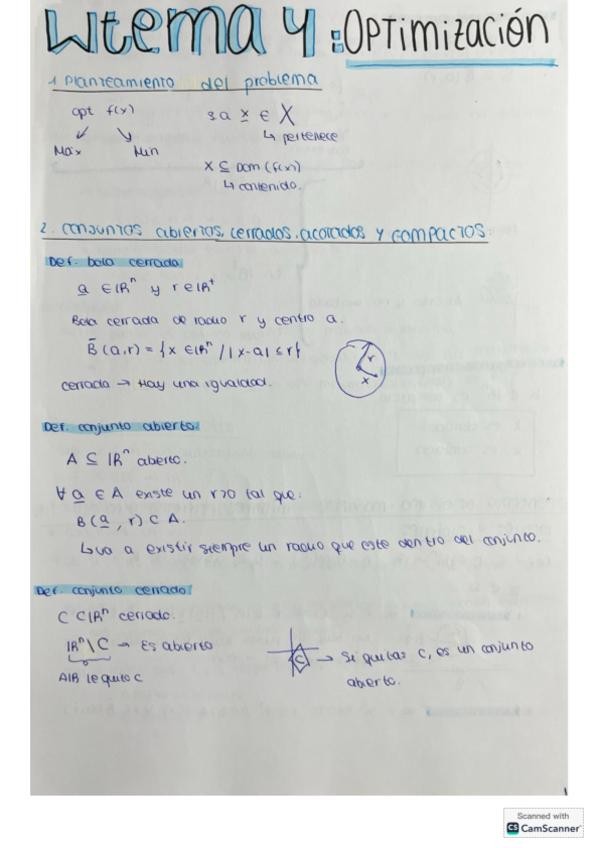 tema 4: OPTimización
1. Planteamiento del problema
opt f(x) s a x ∈ X
↳ pertenece
Max Min
X ⊆ Dom (f(x))
↳ contenido.
2. conjuntos abiertos, cerrados, acotados y compactos.
Def. bola cerrada
a ∈ ℝⁿ y r ∈ ℝ⁺
Bola cerrada de radio r y centro a.
B̄ (a,r) = {x ∈ ℝⁿ / |x-a| ≤ r}
r
x
cerrada → Hay una igualdad.
Def. conjunto abierto:
A ⊆ ℝⁿ abierto.
∀ a ∈ A existe un r>0 tal que:
B(a, r) ⊂ A.
↳ va a existir siempre un radio que este dentro del conjunto.
Def. conjunto cerrado:
C ⊂ ℝⁿ cerrado.
ℝⁿ\C → Es abierto
C → Si quitas C, es un conjunto
abierto.
Al ℝ le quito C
1
Scanned with
CS CamScanner